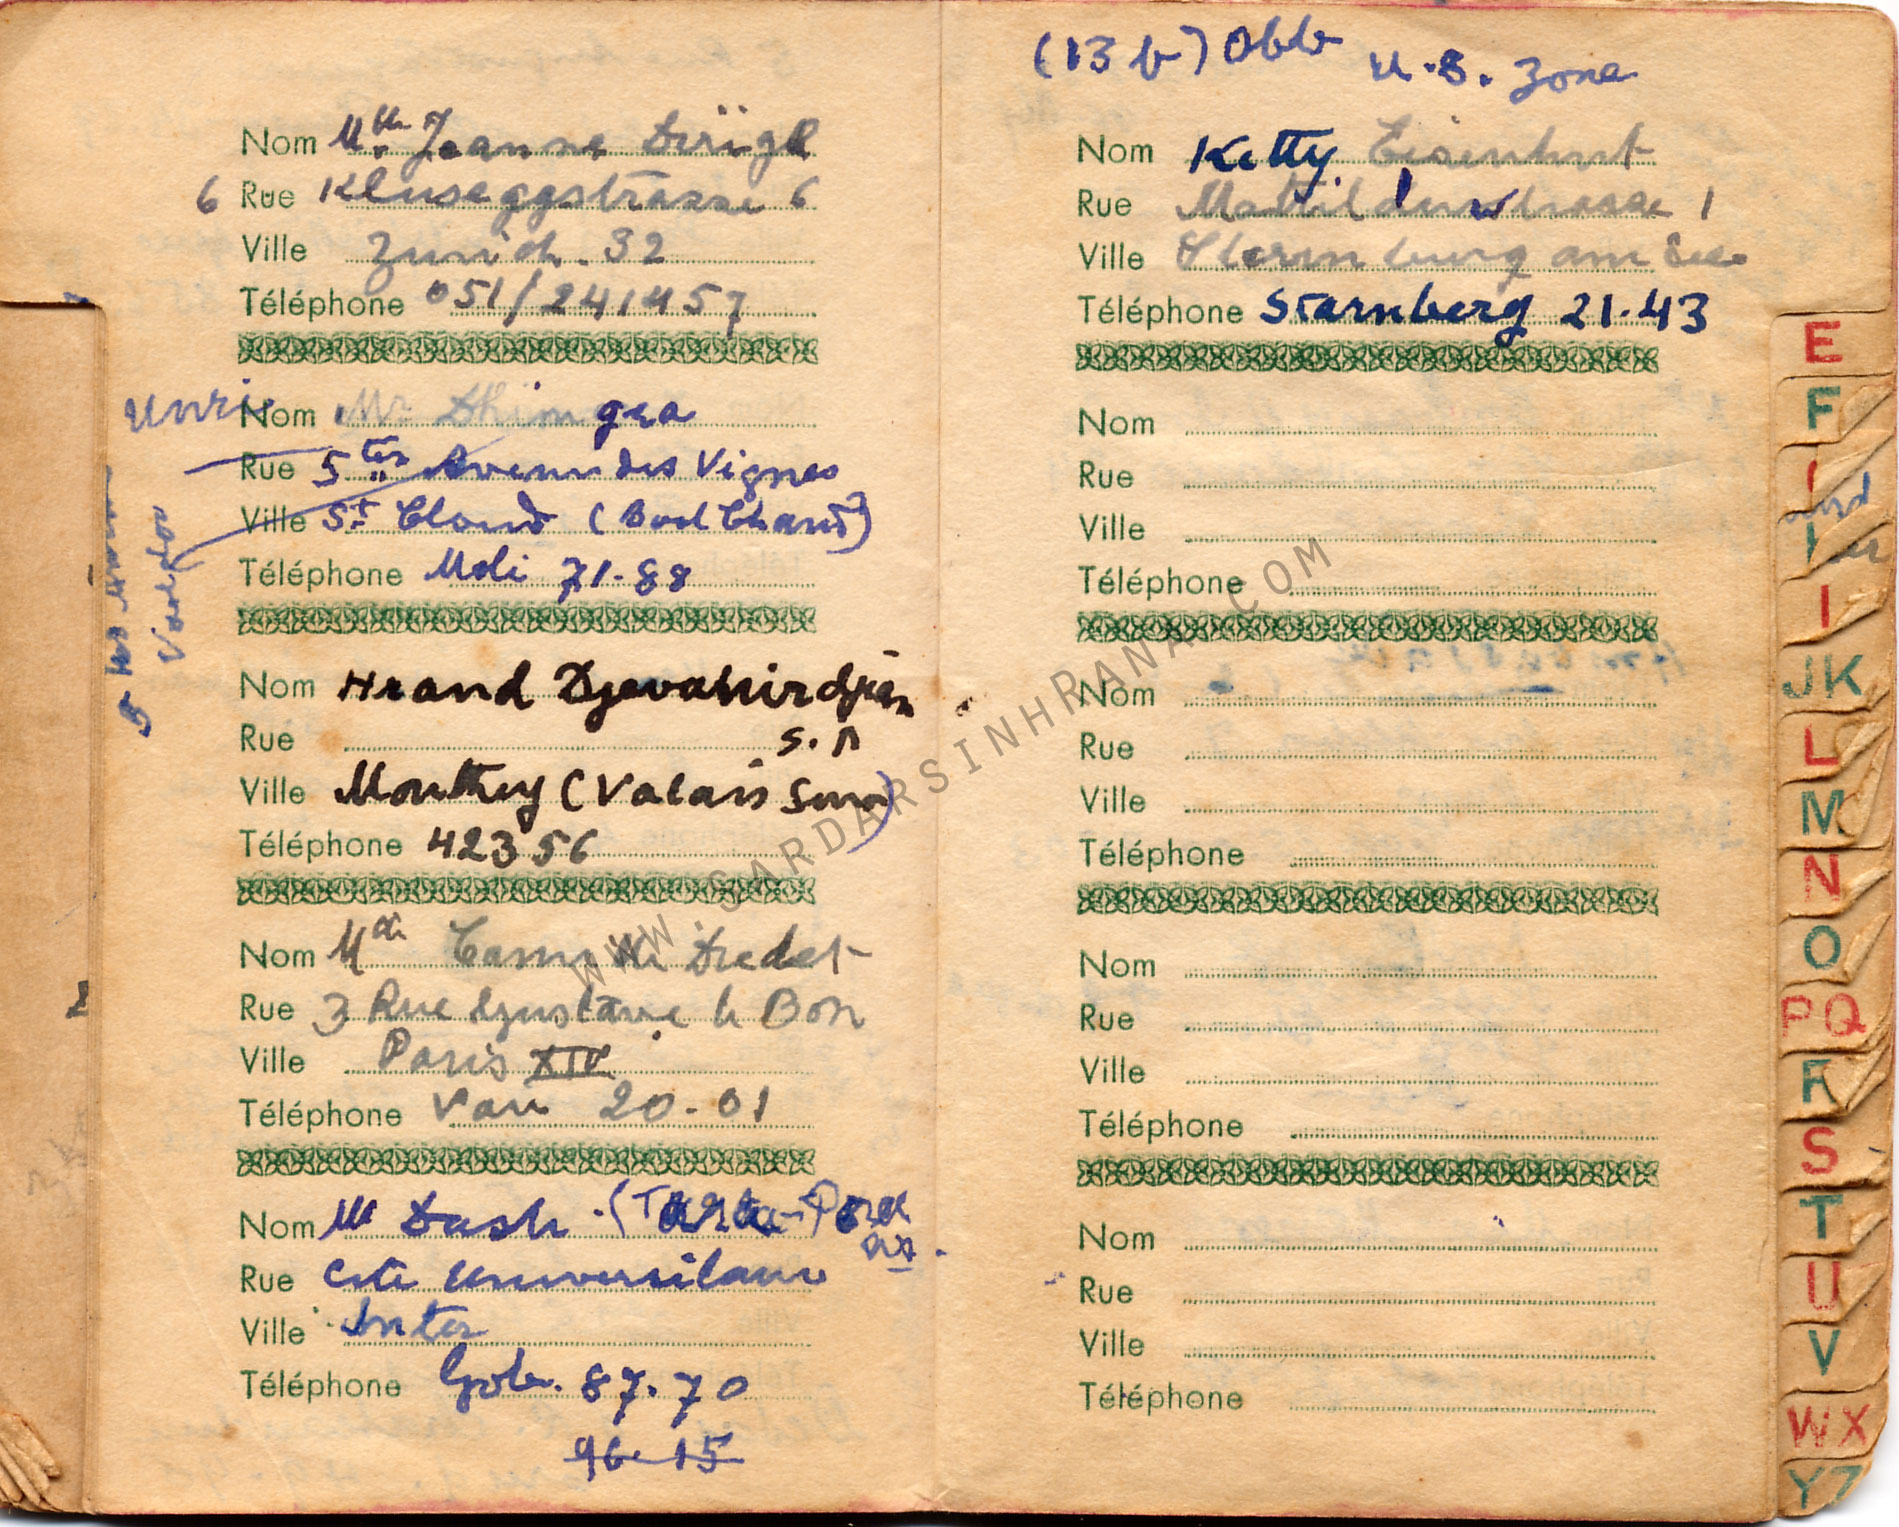 Nom Mlle Jeanne Dirigl
6 Rue Kluseggstrasse 6
Ville Zurich. 32
Téléphone 051/241457
Nom Mr Dhingra
Rue 5 ter Avenue des Vignes
Ville St Cloud
Téléphone Moli 71.88
Nom Hrand Djevahirdjian
Rue S.A
Ville Monthey (Valais
Téléphone 42356
Nom Camille Dredet
Rue 3 Rue Gustave le Bon
Ville Paris XIV
Téléphone Vau 20.01
Nom Mr Dash
Rue Cite Universitaire
Ville Inter
Téléphone Gob. 87.70
96-15
(13 b) Obb U.S. Zone
Nom Ketty Eisenhut
Rue Mathildenstrasse 1
Ville am See
Téléphone Starnberg 21.43
Nom
Rue
Ville
Téléphone
Nom
Rue
Ville
Téléphone
Nom
Rue
Ville
Téléphone
Nom
Rue
Ville
Téléphone
E
F
I
JK
L
M
N
O
PQ
R
S
T
U
V
WX
YZ
WWW.SARDARSINHRANA.COM